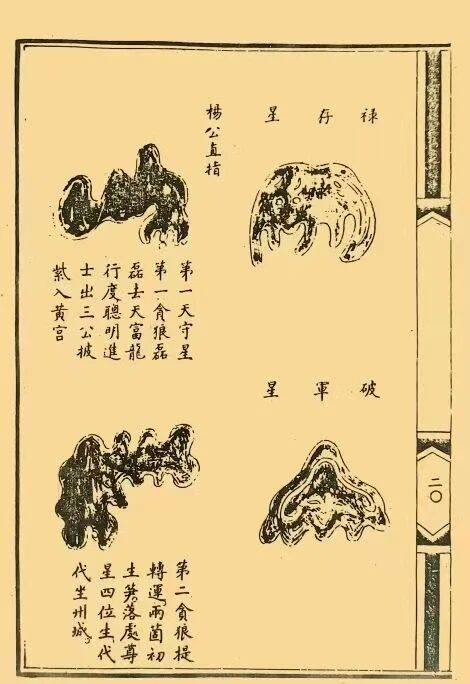 祿存星
破軍星
楊公直指
第一天守星
第一貪狼磊
磊去天富龍
行度聰明進
士出三公披
紫入黃宮
第二貪狼提
轉運兩箇初
生笋落處尊
星四位生代
代坐州城
二〇